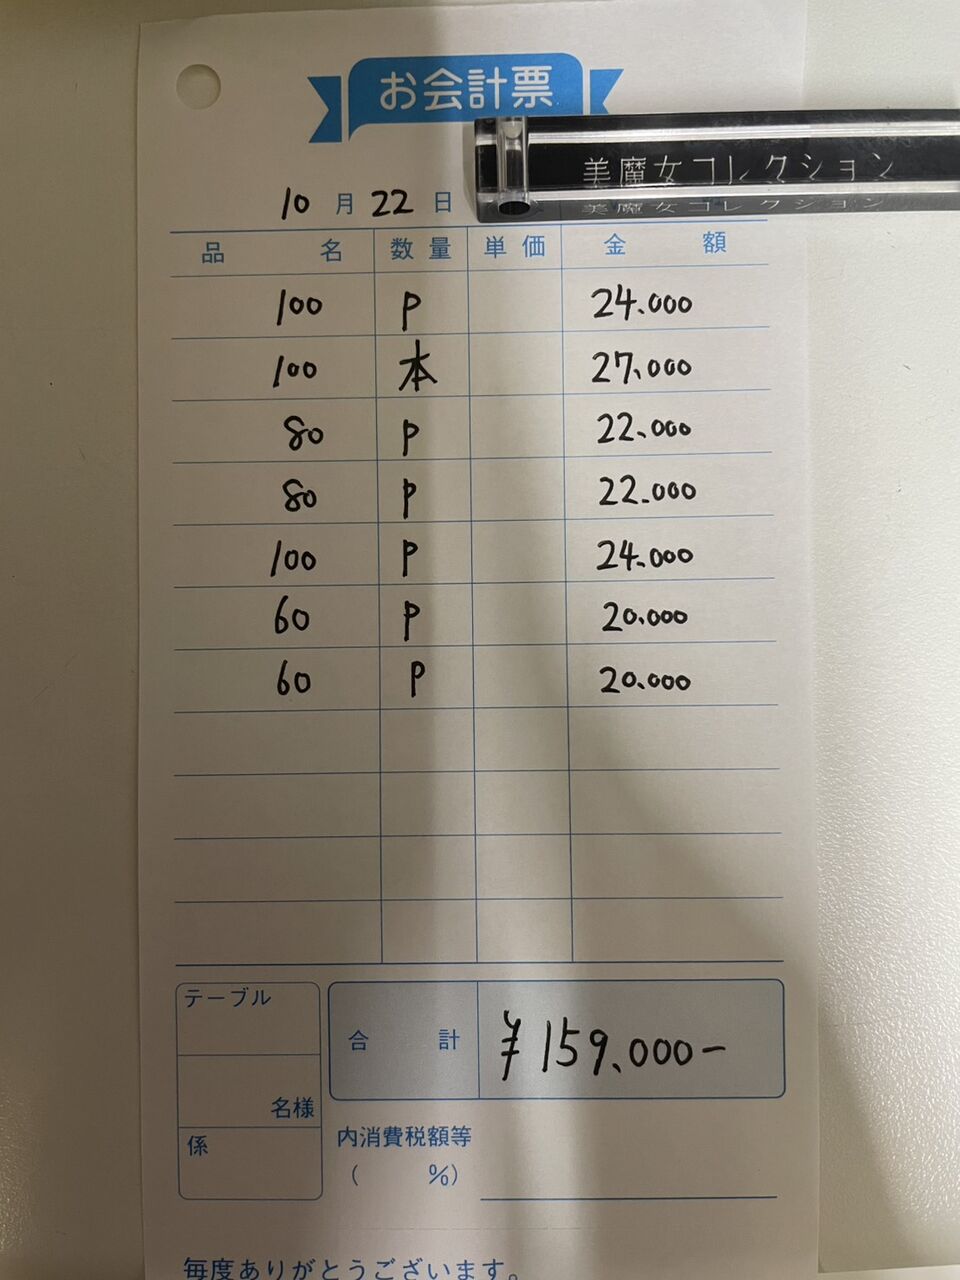 お会計票
美魔女コレクション
10月22日
品名 数量 単価 金額
100 P 24.000
100 本 27.000
80 P 22.000
80 P 22.000
100 P 24.000
60 P 20.000
60 P 20.000
テーブル
名様
係
合計 ¥159.000-
内消費税額等
( %)
毎度ありがとうございます。